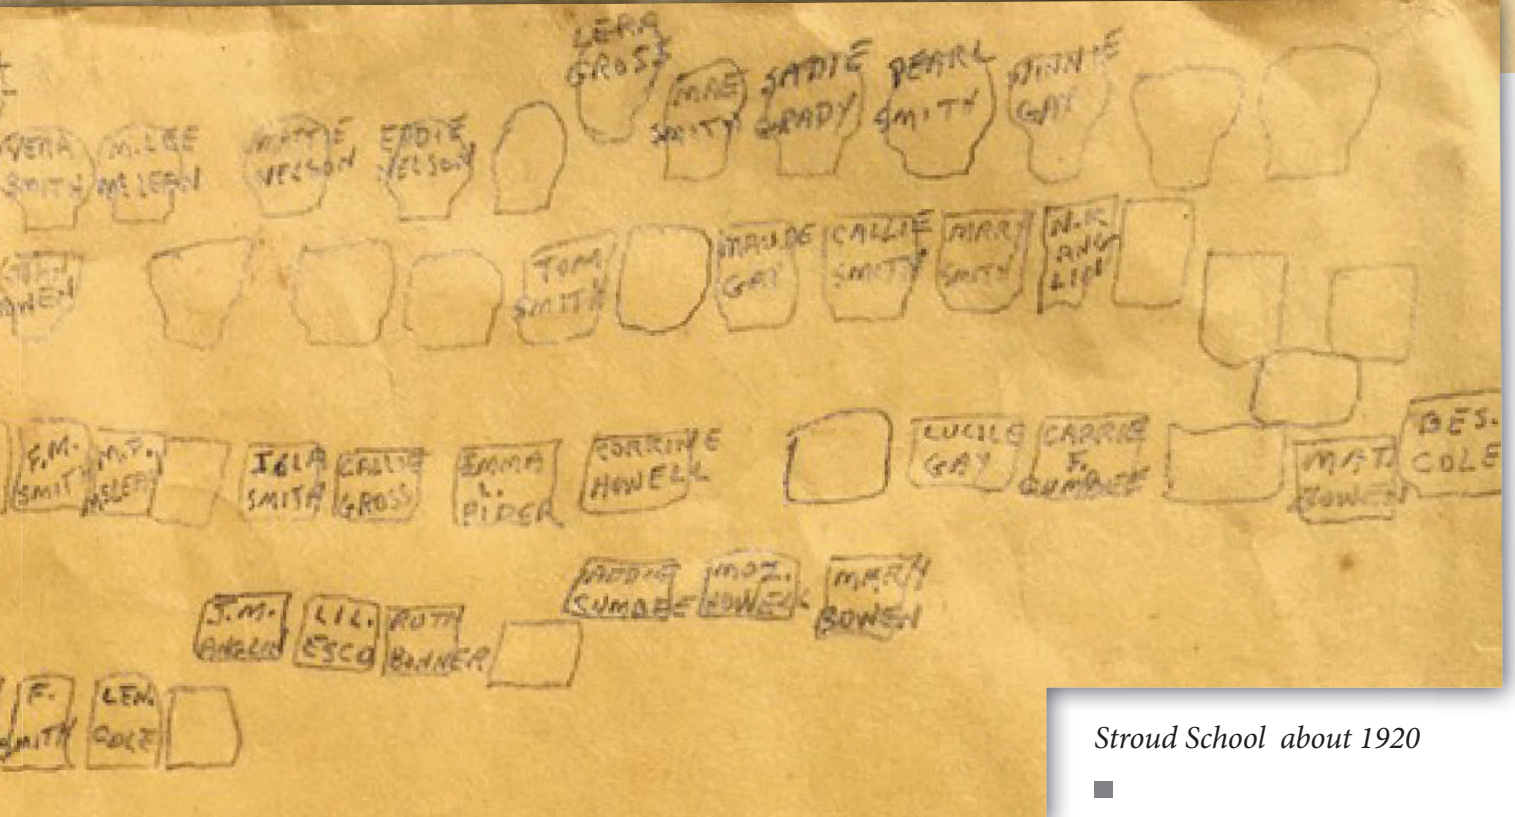 LERA
GROSS
MAE
SMITH
SADIE
GRADY
PEARL
SMITH
JINNIE
GAY
VERA
SMITH
M. LEE
McLEAN
MATTIE
NELSON
EDDIE
NELSON
OWEN
TOM
SMITH
MAUDE
GAY
CALLIE
SMITH
MARY
SMITH
N.K
ANG
LIN
F.M.
SMITH
M.P.
McLEAN
IGLA
SMITH
CALLIE
GROSS
EMMA
L.
PIPER
CORRINE
HOWELL
LUCILE
GAY
CARRIE
F.
GUMBEE
MAT.
BOWEN
BES.
COLE
J.M.
ANGLIN
LIL.
ESCO
RUTH
BONNER
ADDIE
GUMBEE
MOZ.
HOWELL
MARY
BOWEN
F.
SMITH
LEN.
COLE
Stroud School about 1920